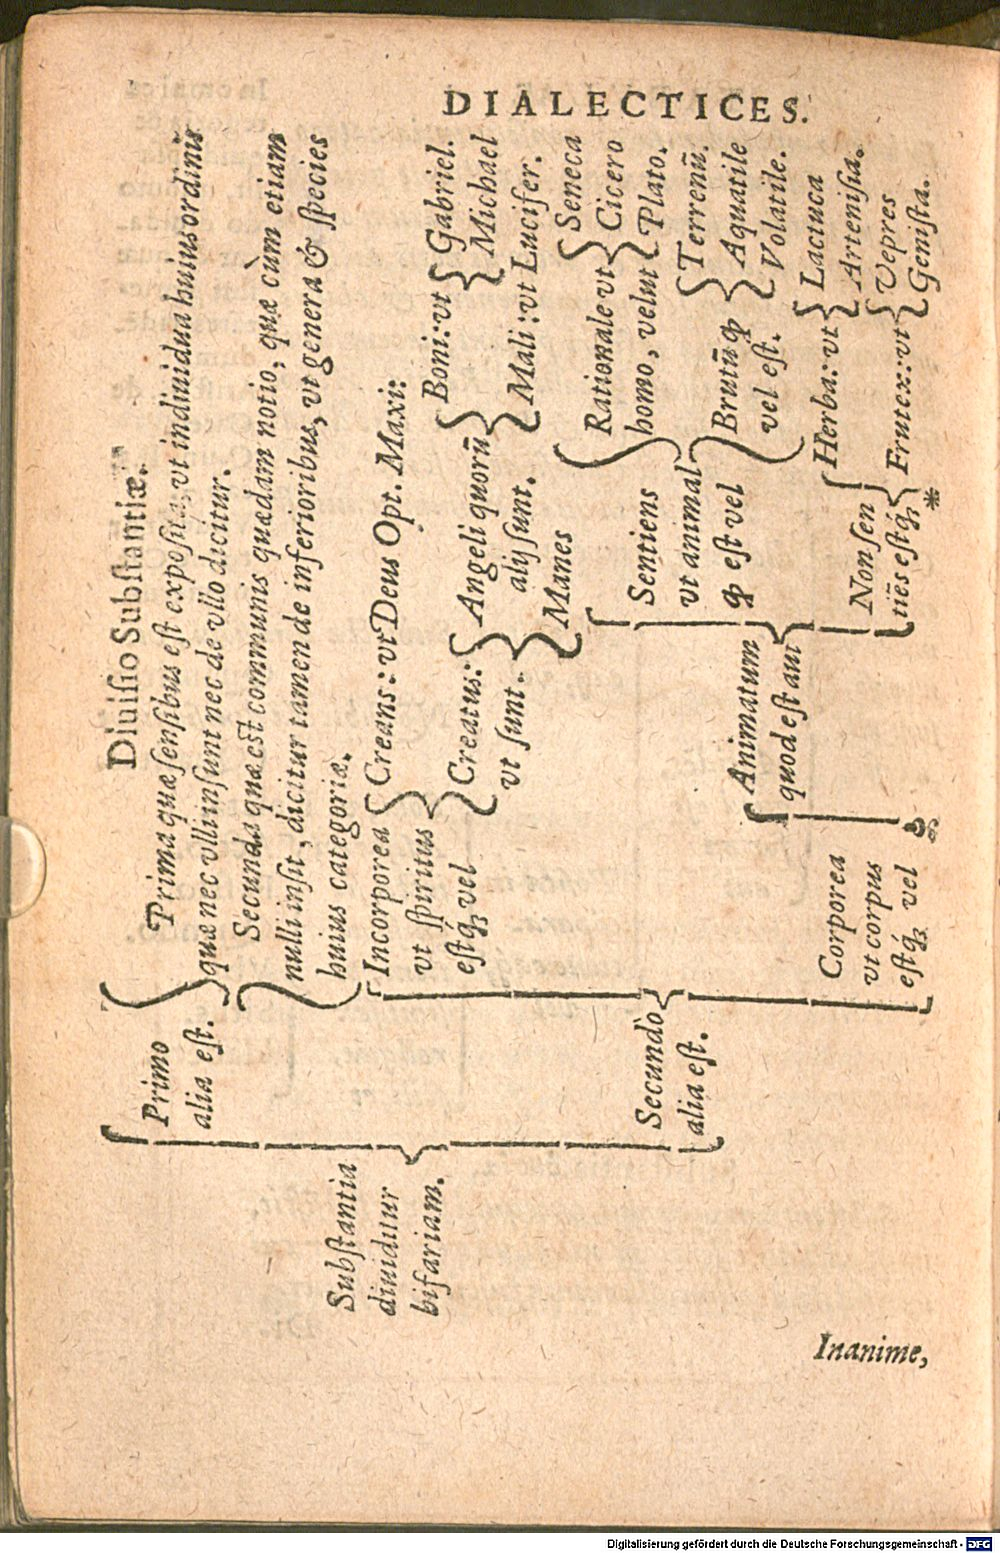 DIALECTICES.
Diuisio Substantiæ.
Substantia
diuiditur
bifariam.
Primo
alia est.
Prima quæ sensibus est exposita, vt indiuidua huius ordinis
quæ nec vlli insunt nec de vllo dicitur.
Secunda quæ est communis quædam notio, quæ cùm etiam
nulli insit, dicitur tamen de inferioribus, vt genera & species
huius categoriæ.
Secundò
alia est.
Incorporea
vt spiritus
estq́ꝫ vel
Creans: vt Deus Opt. Maxi:
Creatus:
vt sunt.
Angeli quorū
alij sunt.
Boni: vt
Gabriel.
Michael
Mali: vt Lucifer.
Manes
Corporea
vt corpus
estq́ꝫ vel
Animatum
quod est aut
Sentiens
vt animal
ꝙ est vel
Rationale vt
homo, velut
Seneca
Cicero
Plato.
Brutū ꝙ
vel est.
Terrenū.
Aquatile
Volatile.
Non sen
tiēs estq́ꝫ
Herba: vt
Lactuca
Artemisia.
Frutex: vt
Vepres
Genista.
*
Inanime,
Digitalisierung gefördert durch die Deutsche Forschungsgemeinschaft - DFG